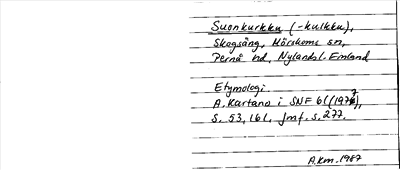 Suonkurkku (-kulkku),
Skogsäng, Mörskoms sn,
Pernå hd, Nylandsl. Finland
Etymologi.
A. Kartano i SNF 61 (1977),
S. 53, 161. Jmf. s. 277.
A.km. 1987